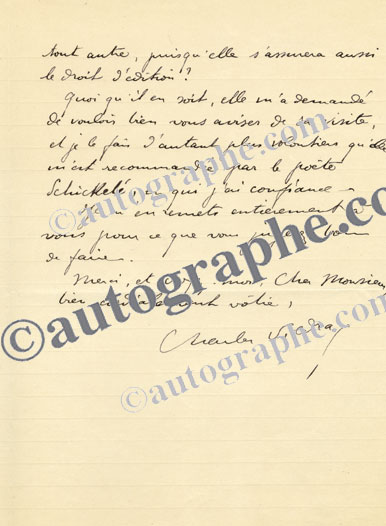 tout autre, puisqu'elle s'assurera aussi
le droit d'édition ?
Quoi qu'il en soit, elle m'a demandé
de vouloir bien vous aviser de sa visite,
et je le fais d'autant plus volontiers qu'elle
m'est recommandée par le poète
Schickelé, en qui j'ai confiance.
Je m'en remets entièrement à
vous pour ce que vous jugerez bon
de faire.
Merci, et croyez-moi, Cher Monsieur,
bien cordialement vôtre,
Charles Vildrac
©autographe.com
©autographe.com
©autographe.com
©autographe.com